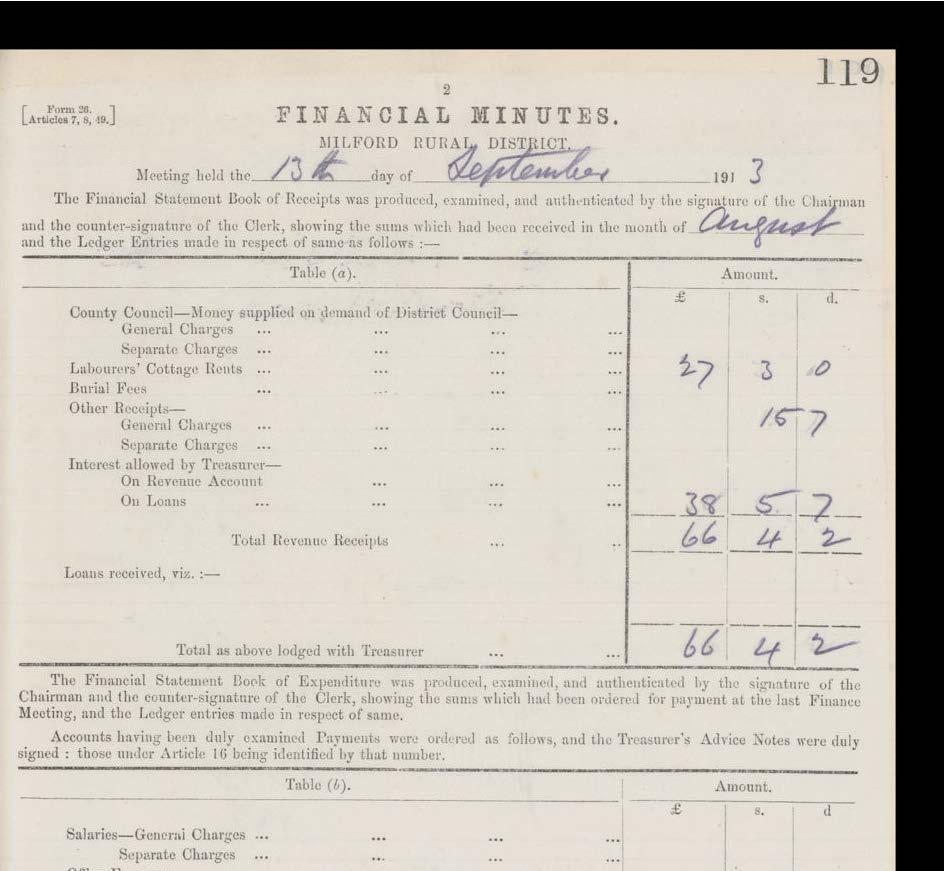 119
2
[Form 26.
Articles 7, 8, 49.]
FINANCIAL MINUTES.
MILFORD RURAL DISTRICT.
Meeting held the 13th day of September 1913
The Financial Statement Book of Receipts was produced, examined, and authenticated by the signature of the Chairman
and the counter-signature of the Clerk, showing the sums which had been received in the month of August
and the Ledger Entries made in respect of same as follows :—
Table (a). Amount.
£ s. d.
County Council—Money supplied on demand of District Council—
General Charges ... ... ... ...
Separate Charges ... ... ... ...
Labourers' Cottage Rents ... ... ... ... 27 3 0
Burial Fees ... ... ... ...
Other Receipts—
General Charges ... ... ... ... 15 7
Separate Charges ... ... ... ...
Interest allowed by Treasurer—
On Revenue Account ... ... ...
On Loans ... ... ... ... 38 5 7
Total Revenue Receipts ... .. 66 4 2
Loans received, viz. :—
Total as above lodged with Treasurer ... ... 66 4 2
The Financial Statement Book of Expenditure was produced, examined, and authenticated by the signature of the
Chairman and the counter-signature of the Clerk, showing the sums which had been ordered for payment at the last Finance
Meeting, and the Ledger entries made in respect of same.
Accounts having been duly examined Payments were ordered as follows, and the Treasurer's Advice Notes were duly
signed : those under Article 16 being identified by that number.
Table (b). Amount.
£ s. d
Salaries—General Charges ... ... ... ...
Separate Charges ... ... ... ...